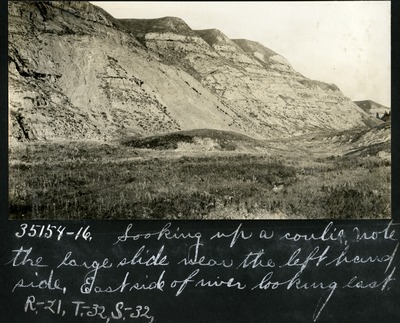 35154-16. Looking up a coulie, note
the large slide near the left hand
side. East side of river looking east
R-21, T-32, S-32,